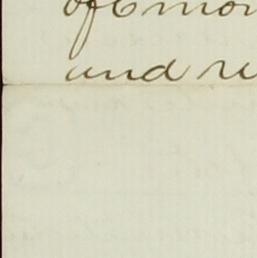 of 6 mon
and re